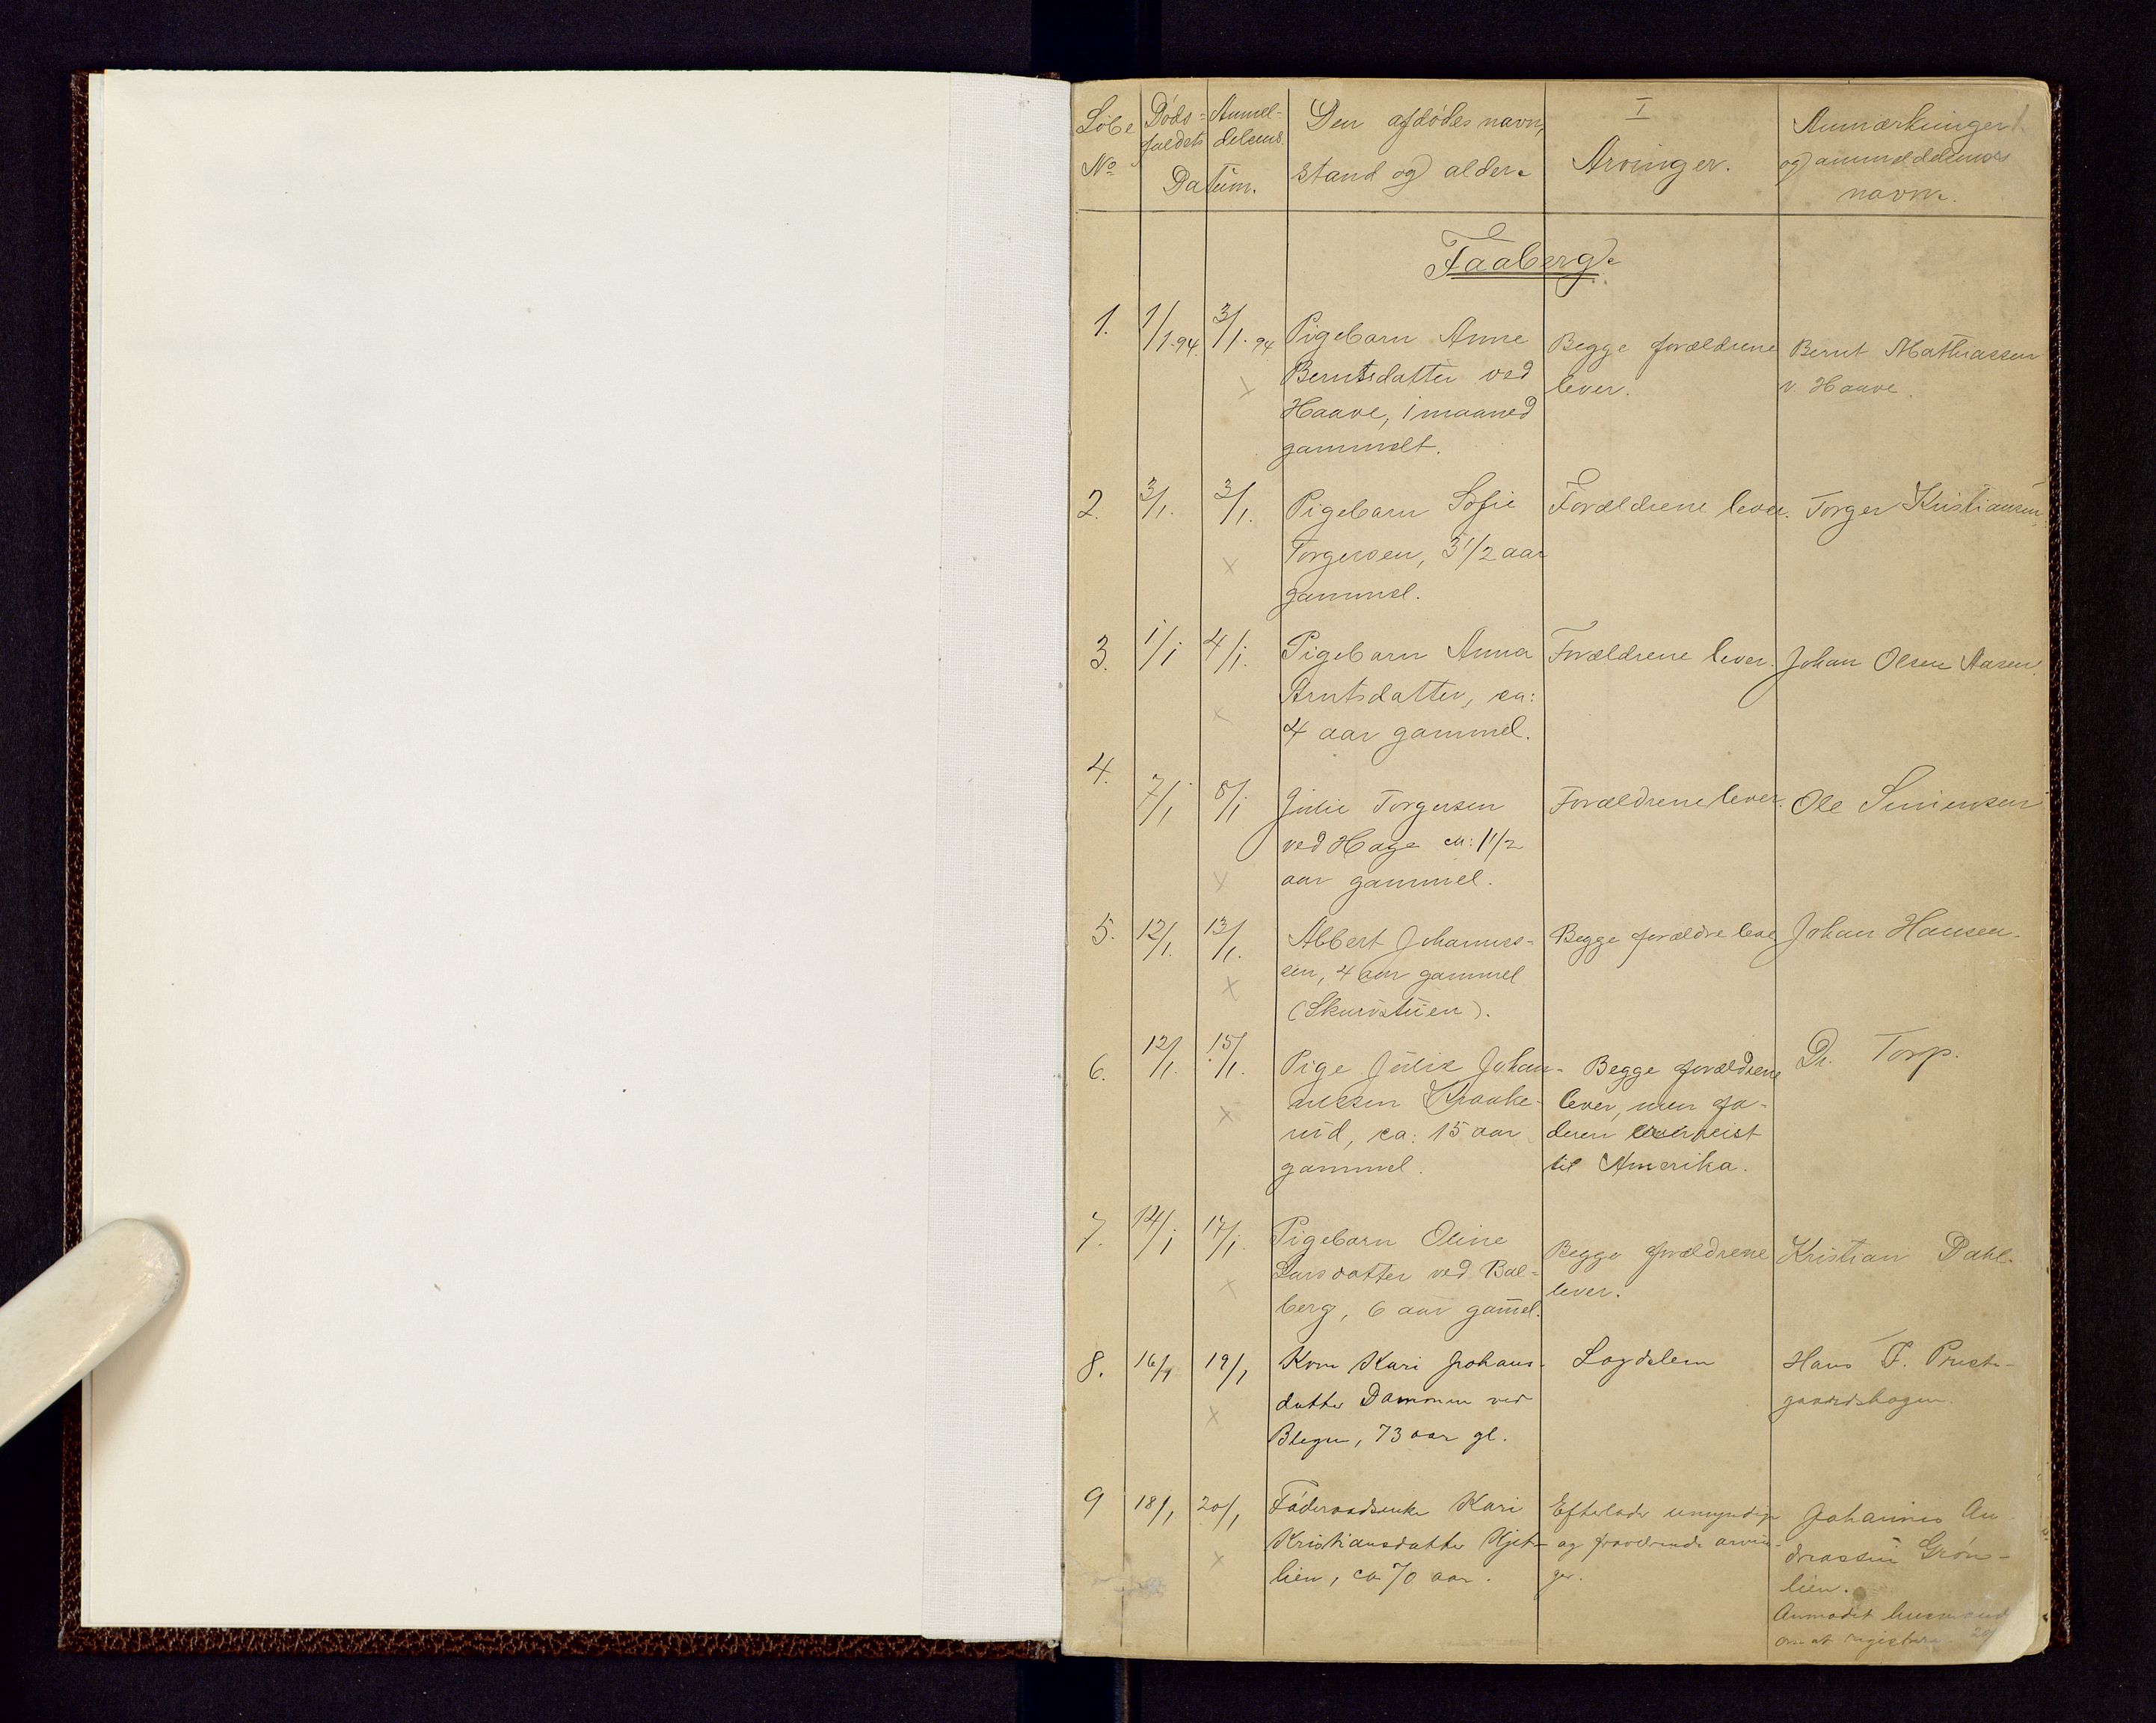 Løbe Døds- Anmel- Den afdødes navn, I Anmærkninger
faldets delsens
No Datum. stand og alder. Arvinger. og anmelderens
navn.
Faaberg.
1. 1/1-94. 3/1-94 Pigebarn Anne Begge forældrene Bernt Mathiassen
Berntsdatter ved lever. v. Haave.
Haave, 1 maaned
gammelt.
2. 3/1. 3/1. Pigebarn Sofie Forældrene lever. Torger Kristiansen
Torgersen, 3 1/2 aar
gammel.
3. 1/1 4/1. Pigebarn Anna Forældrene lever. Johan Olsen Aasen.
Arntsdatter, ca:
4 aar gammel.
4. 7/1 8/1 Julie Torgersen Forældrene lever. Ole Simensen
ved Hage ca: 1 1/2
aar gammel.
5. 12/1. 13/1. Albert Johannes- Begge forældre lever Johan Hansen.
sen, 4 aar gammel
(Skurvstuen).
6. 12/1. 15/1. Pige Julie Johan- Begge forældrene Dr. Torp.
nessen Kraake- lever, men fa-
rud, ca: 15 aar deren er reist
gammel. til Amerika.
7. 14/1 17/1. Pigebarn Oline Begge forældrene Kristian Dahl.
Larsdatter ved Bal- lever.
berg, 6 aar gam̄el.
8. 16/1 19/1 Kone Kari Johans- Logdslem Hans F. Prest-
datter Dammen ved gaardshagen.
Blegen, 73 aar gl.
9 18/1 20/1 Føderaadsenke Kari Efterlader umyndige Johannes An-
Kristiansdatter Kjet- og fraværende arvin- dreassen Grøn-
lien, ca 70 aar. ger. lien.
Anmodet
om at registrere